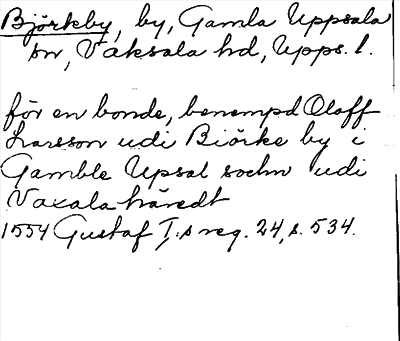 Björkby, by, Gamla Uppsala
sn, Vaksala hd, Upps. l.
för en bonde, benempd Oloff
Larsson udi Biörke by i
Gamble Upsal sochn udi
Vaxala häredt
1554 Gustaf I:s reg. 24, s. 534.